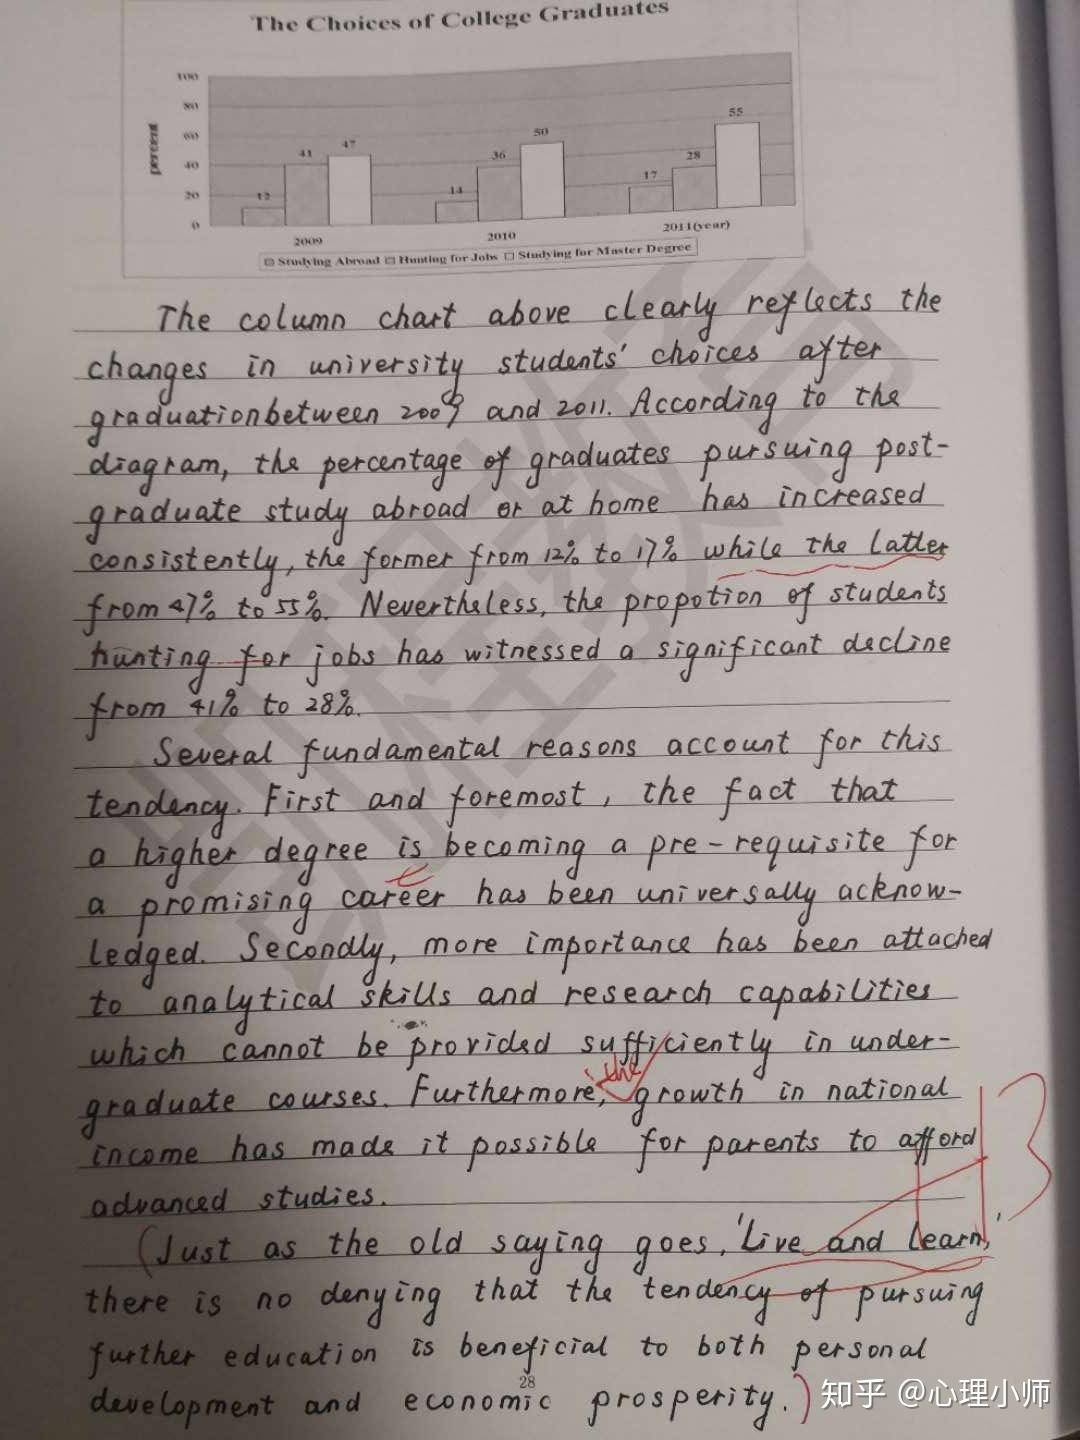 The Choices of College Graduates
percent
100
80
60
40
20
0
12
41
47
14
36
50
17
28
55
2009
2010
2011(year)
Studying Abroad Hunting for Jobs Studying for Master Degree
The column chart above clearly reflects the
changes in university students' choices after
graduation between 2009 and 2011. According to the
diagram, the percentage of graduates pursuing post-
graduate study abroad or at home has increased
consistently, the former from 12% to 17% while the latter
from 47% to 55%. Nevertheless, the propotion of students
hunting for jobs has witnessed a significant decline
from 41% to 28%.
Several fundamental reasons account for this
tendency. First and foremost, the fact that
a higher degree is becoming a pre-requisite for
a promising career has been universally acknow-
ledged. Secondly, more importance has been attached
to analytical skills and research capabilities
which cannot be provided sufficiently in under-
the
graduate courses. Furthermore, growth in national
income has made it possible for parents to afford
advanced studies.
13
(Just as the old saying goes, 'Live and learn,'
there is no denying that the tendency of pursuing
further education is beneficial to both personal
development and economic prosperity.)
28
知乎 @心理小师